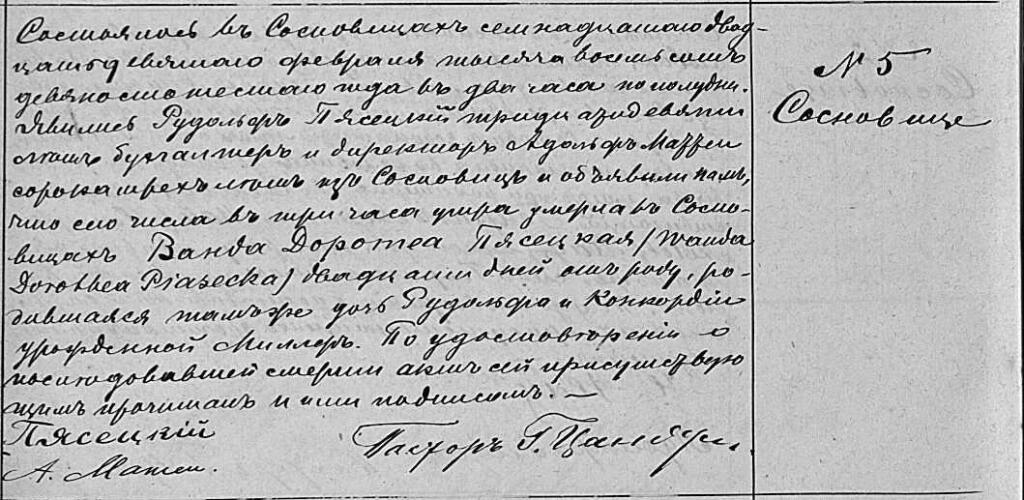 Состоялось въ Сосновицахъ семнадцатаго двад-
цать девятаго февраля тысяча восемьсотъ
девяносто шестаго года въ два часа по полудни.
Явились Рудольфъ Пясецкій тридцати девяти
лѣтъ бухгалтеръ и директоръ Адольфъ Маттеи
сорока трехъ лѣтъ изъ Сосновицъ и объявили намъ,
что сего числа въ три часа утра умерла въ Сосно-
вицахъ Ванда Доротеа Пясецкая /Wanda
Dorothea Piasecka/ двадцати дней отъ роду, ро-
дившаяся тамъ же дочь Рудольфа и Конкордіи
урожденной Миллеръ. По удостовѣреніи о
послѣдовавшей смерти актъ сей присутствую
щимъ прочитанъ и ими подписанъ. —
Пясецкій
А. Матеи.
Пасторъ Г.
№ 5
Сосновице